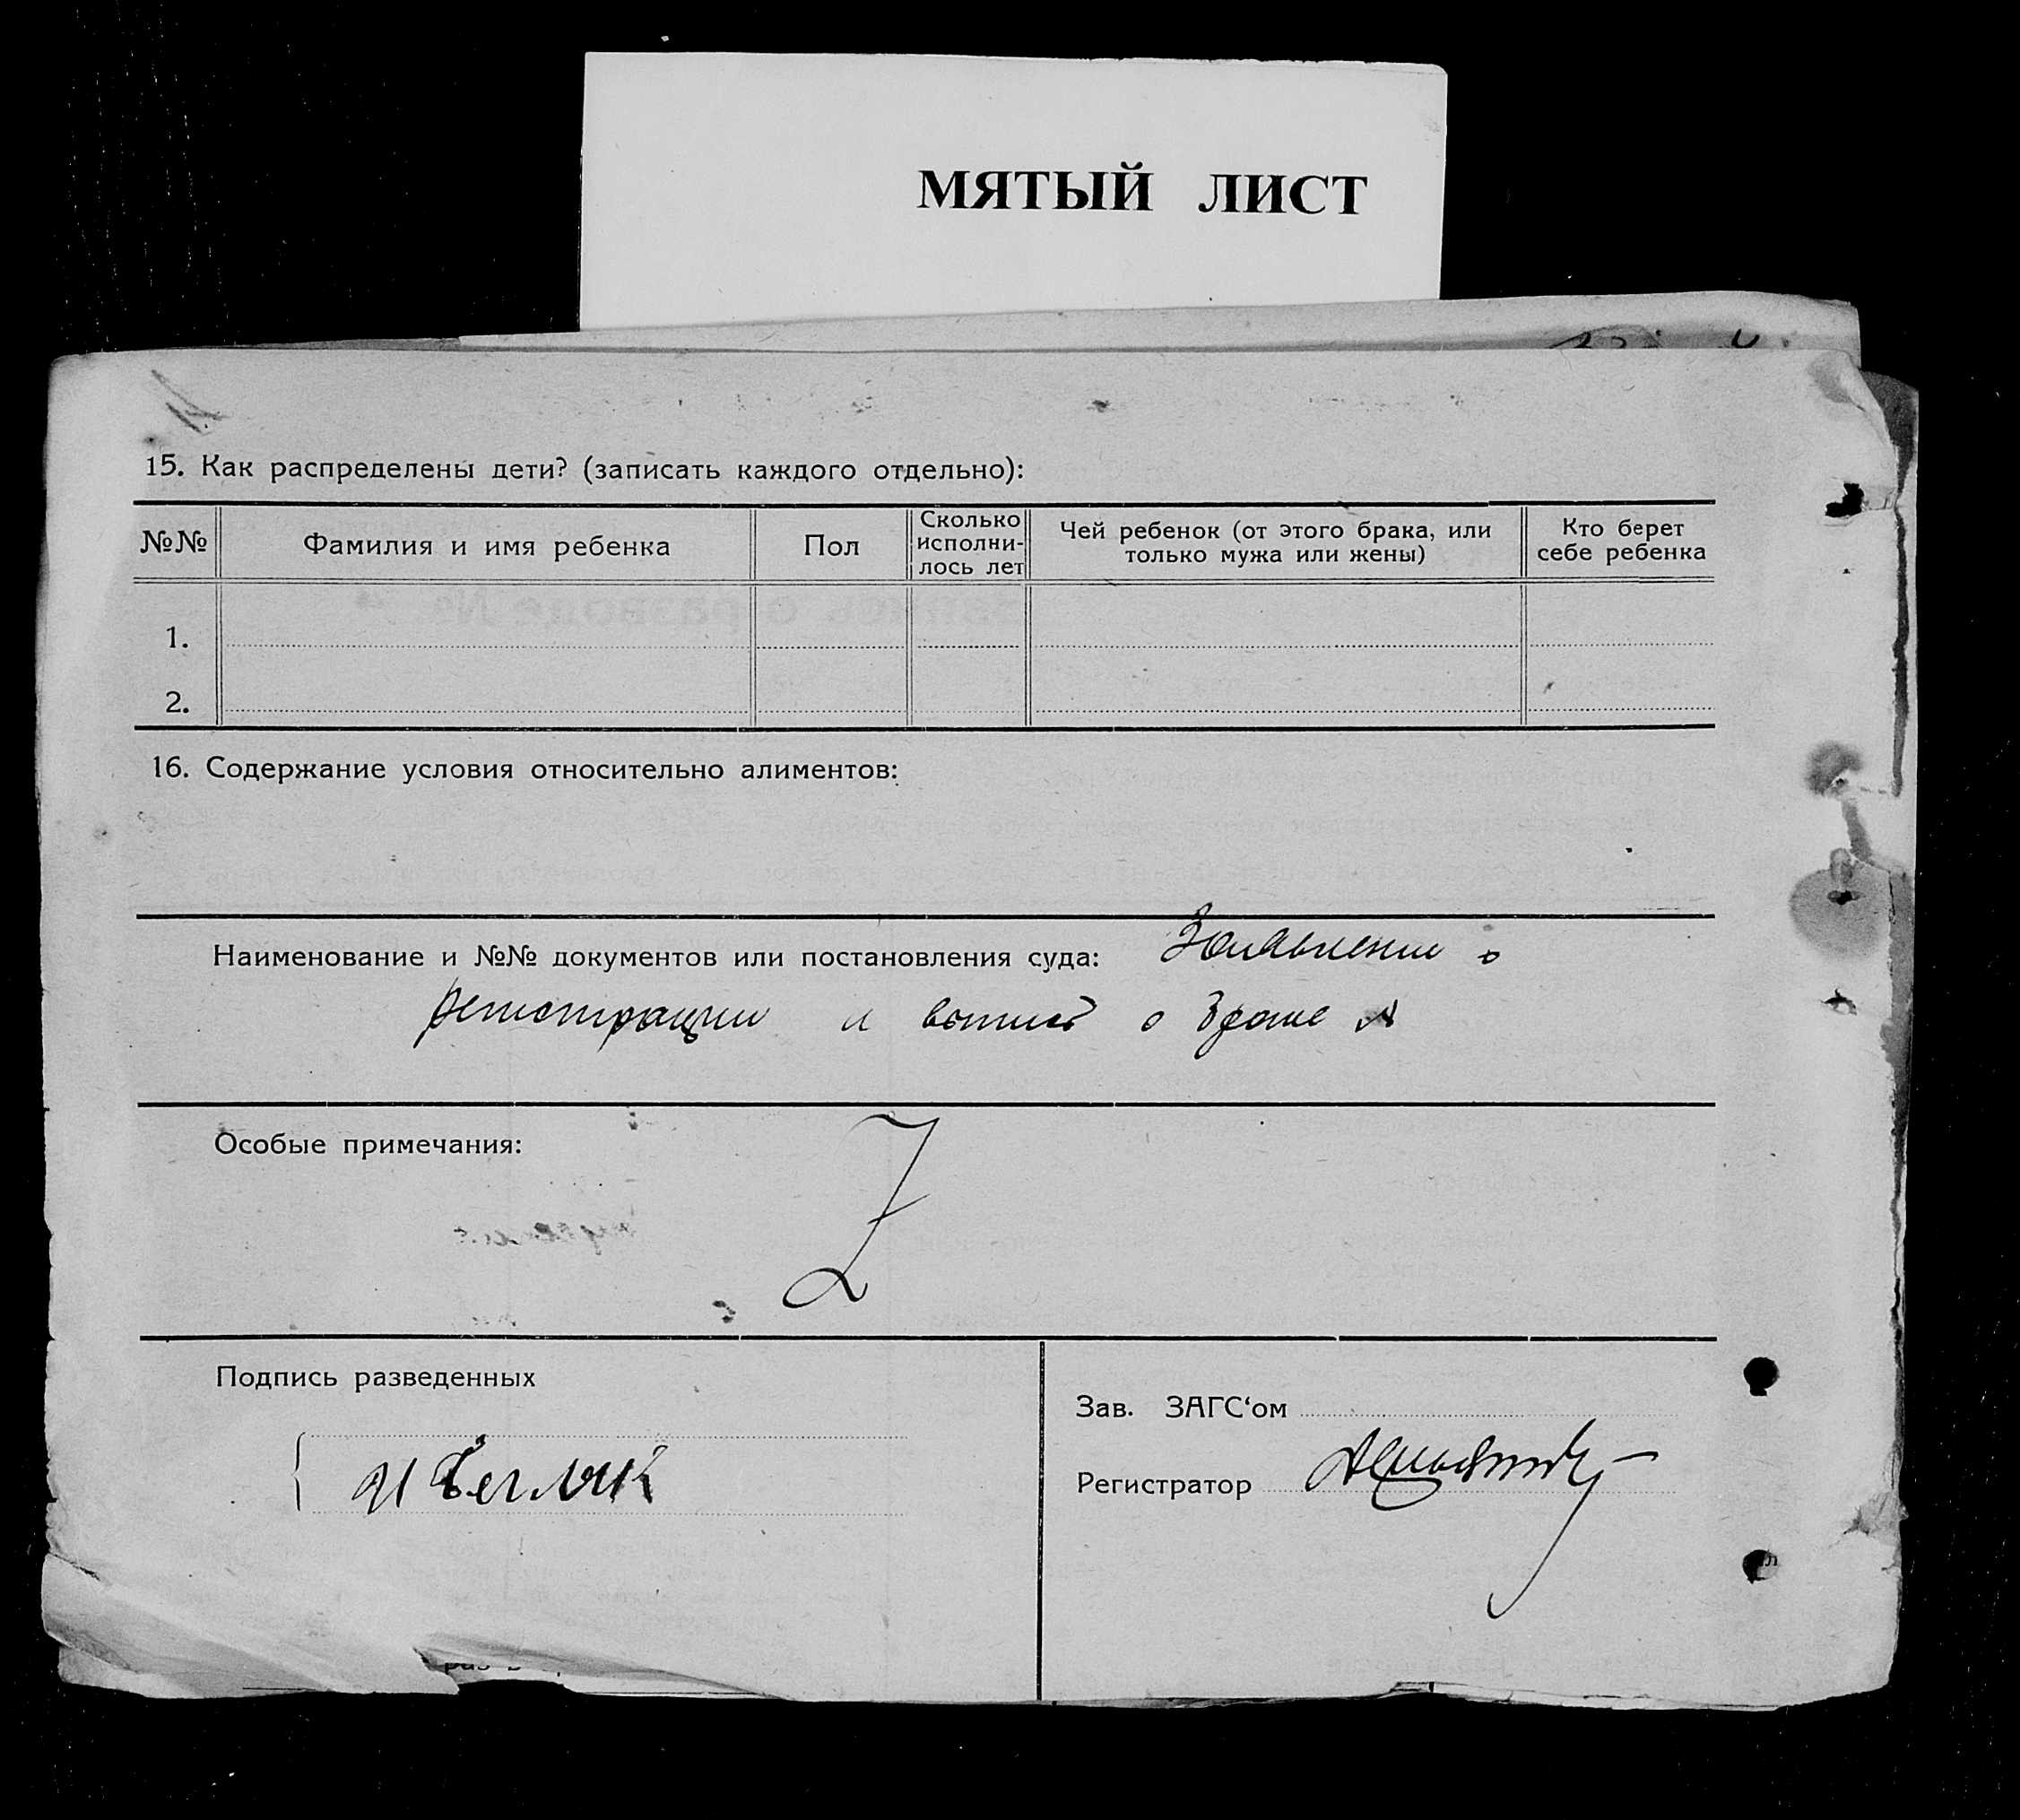 МЯТЫЙ ЛИСТ
15. Как распределены дети? (записать каждого отдельно):
№№ Фамилия и имя ребенка Пол Сколько исполни-лось лет Чей ребенок (от этого брака, или только мужа или жены) Кто берет себе ребенка
1.
2.
16. Содержание условия относительно алиментов:
Наименование и №№ документов или постановления суда: Заявление о
регистрации и выпись о браке
Особые примечания:
Z
Подпись разведенных
Зав. ЗАГС‘ом
Регистратор